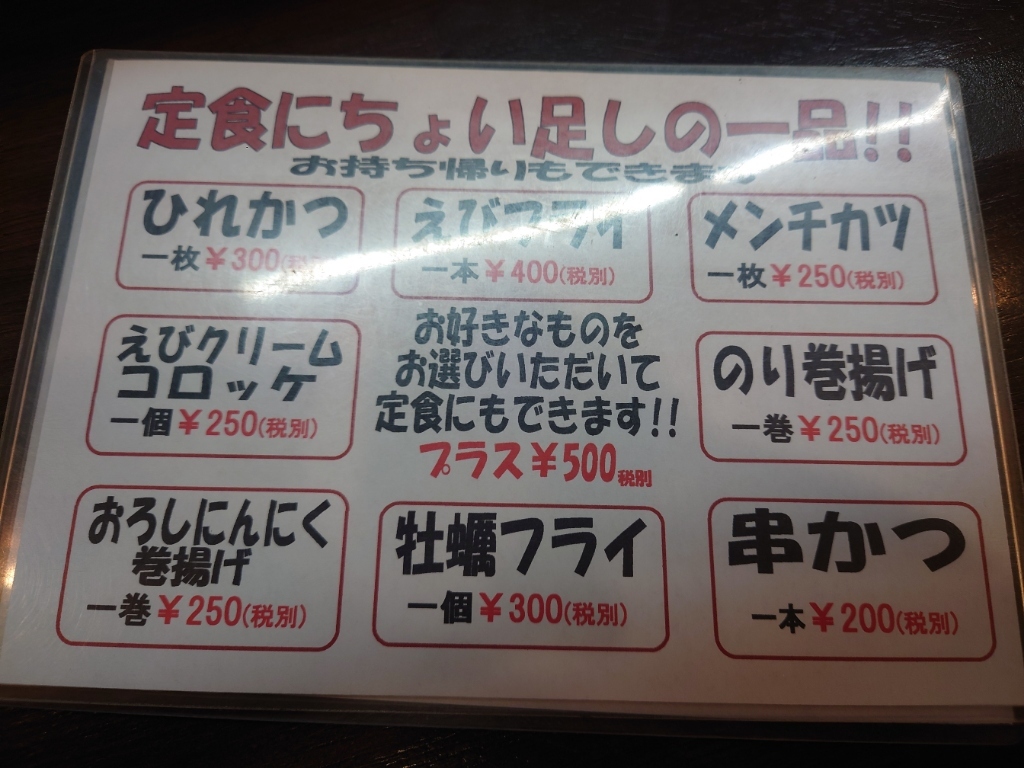 定食にちょい足しの一品!!
お持ち帰りもできます
ひれかつ
一枚￥300(税別)
えびフライ
一本￥400(税別)
メンチカツ
一枚￥250(税別)
えびクリーム
コロッケ
一個￥250(税別)
お好きなものを
お選びいただいて
定食にもできます!!
プラス￥500税別
のり巻揚げ
一巻￥250(税別)
おろしにんにく
巻揚げ
一巻￥250(税別)
牡蠣フライ
一個￥300(税別)
串かつ
一本￥200(税別)